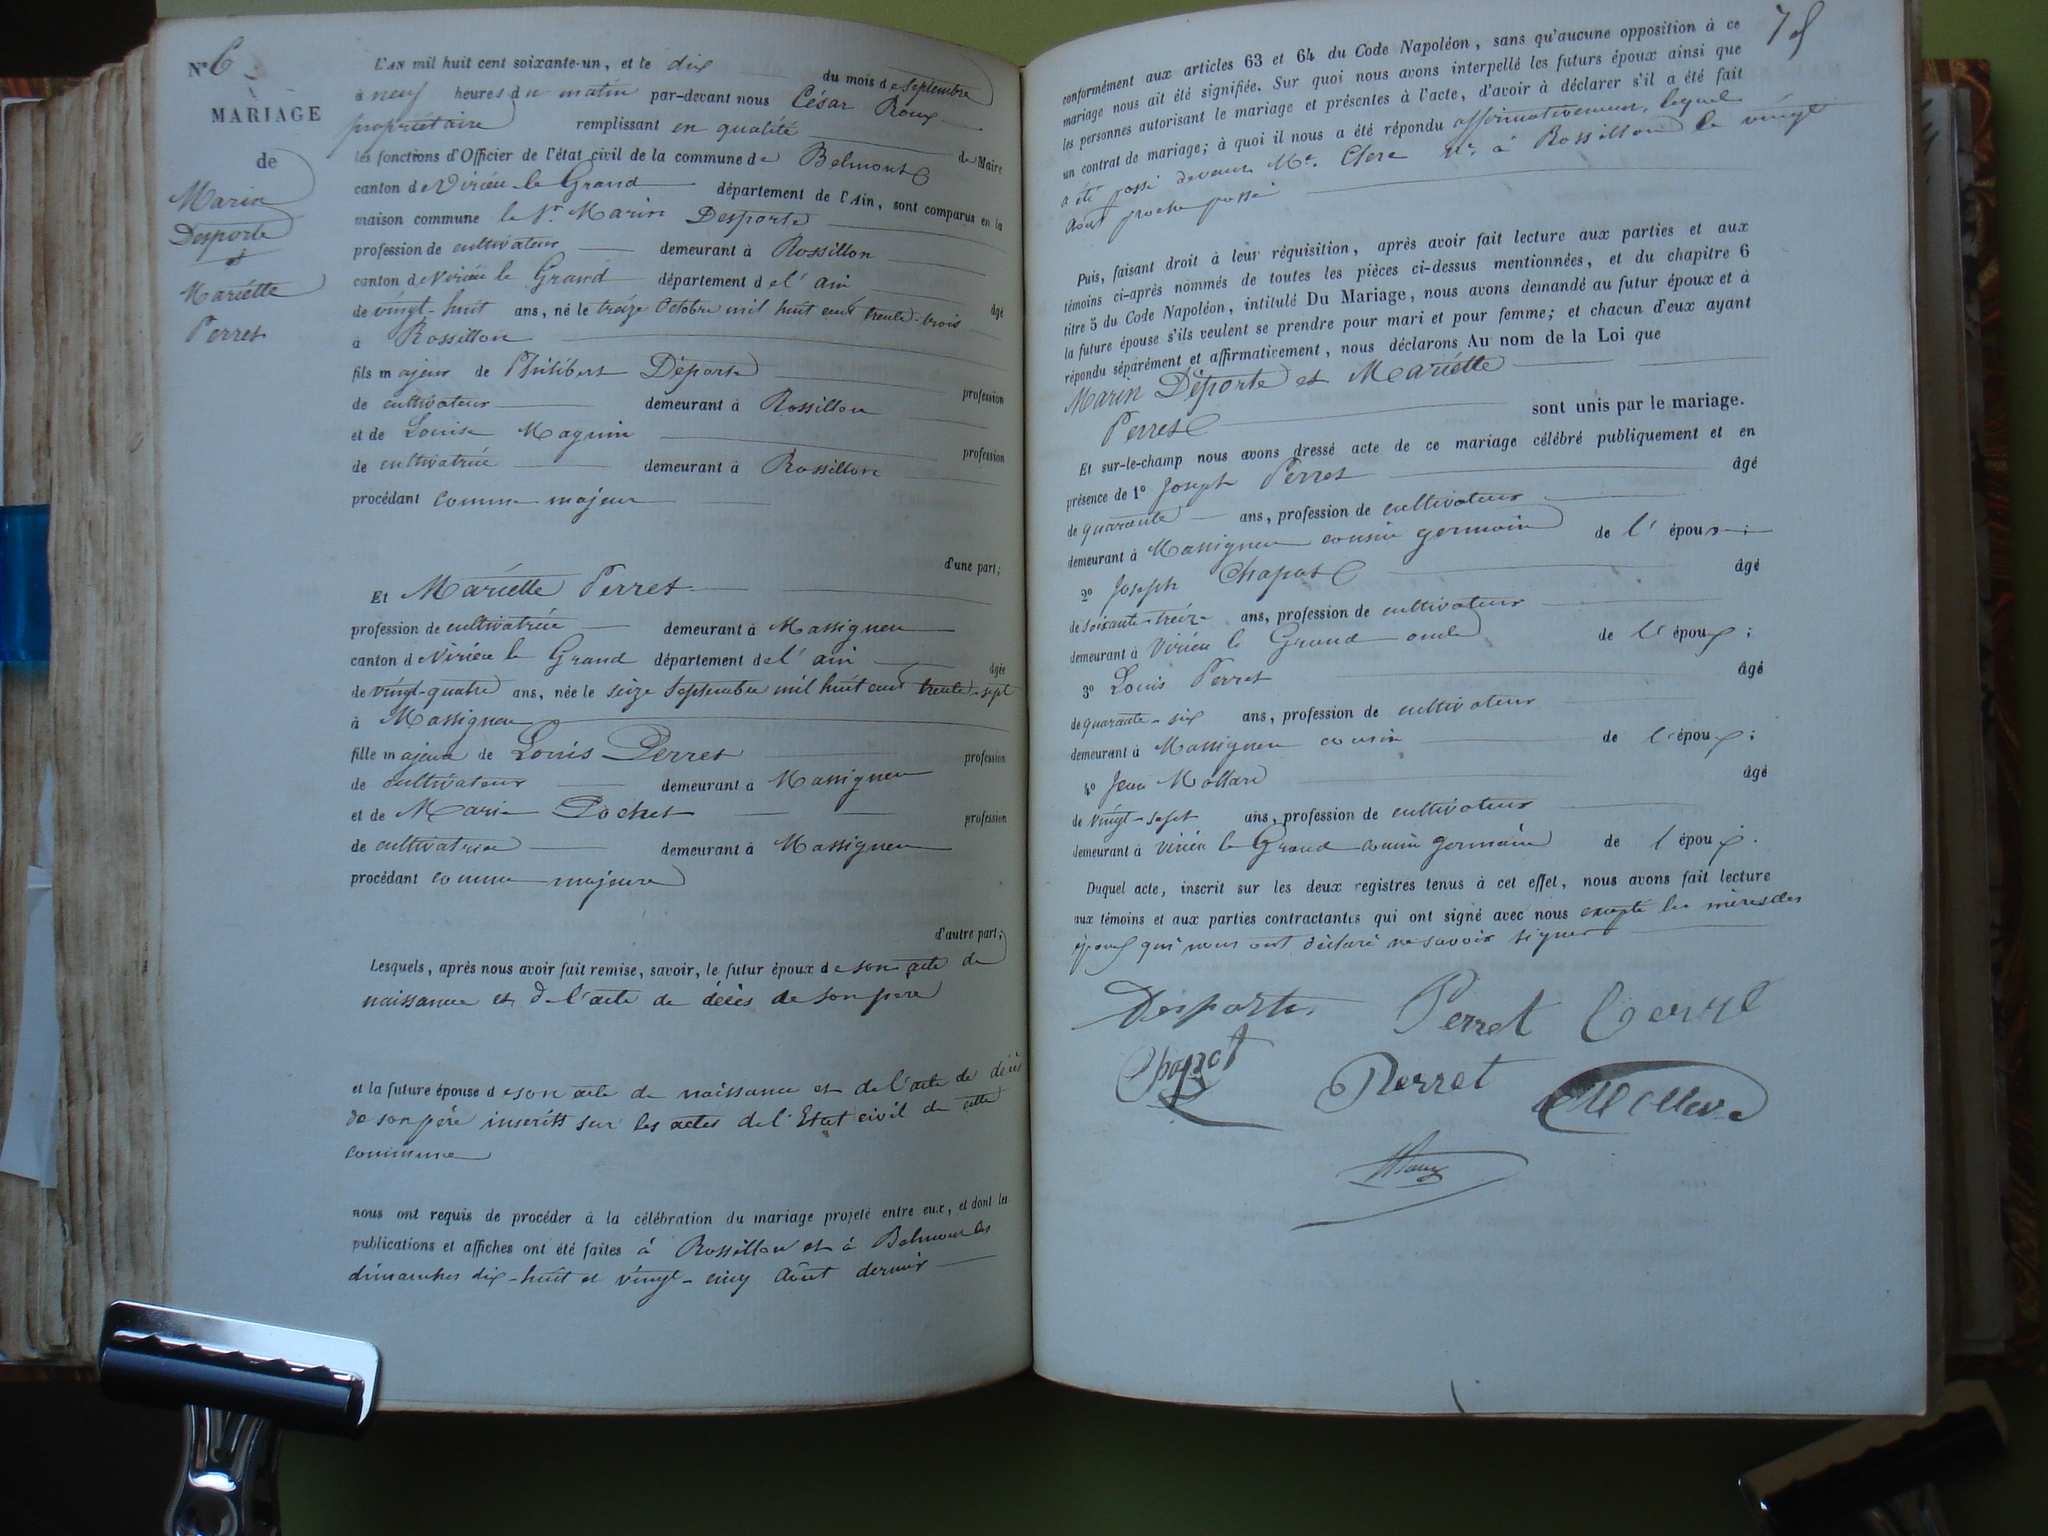 N° 6
MARIAGE
de
Marin
Desporte
et
Mariette
Perret
L'AN mil huit cent soixante-un, et le dix du mois de Septembre
à neuf heures du matin par-devant nous César Roux
propriétaire remplissant en qualité de Maire
les fonctions d'Officier de l'état civil de la commune de Belmont
canton de Virieu le Grand département de l'Ain, sont comparus en la
maison commune le Sr Marin Desporte
profession de cultivateur demeurant à Rossillon
canton de Virieu le Grand département de l'ain âgé
de vingt-huit ans, né le treize Octobre mil huit cent trente-trois
à Rossillon
fils majeur de Philibert Déporte profession
de cultivateur demeurant à Rossillon
et de Louise Magnin profession
de cultivatrice demeurant à Rossillon
procédant comme majeur
d'une part;
Et Mariette Perret
profession de cultivatrice demeurant à Massigneu
canton de Virieu le Grand département de l'ain âgée
de vingt-quatre ans, née le seize Septembre mil huit cent trente-sept
à Massigneu
fille majeure de Louis Perret profession
de cultivateur demeurant à Massigneu
et de Marie Pochet profession
de cultivatrice demeurant à Massigneu
procédant comme majeure
d'autre part;
Lesquels, après nous avoir fait remise, savoir, le futur époux de son acte de
naissance et de l'acte de décès de son père
et la future épouse de son acte de naissance et de l'acte de décès
de son père inscrits sur les actes de l'Etat civil de cette
commune
nous ont requis de procéder à la célébration du mariage projeté entre eux, et dont les
publications et affiches ont été faites à Rossillon et à Belmont les
dimanches dix-huit et vingt-cinq Août dernier
75
conformément aux articles 63 et 64 du Code Napoléon, sans qu'aucune opposition à ce
mariage nous ait été signifiée. Sur quoi nous avons interpellé les futurs époux ainsi que
les personnes autorisant le mariage et présentes à l'acte, d'avoir à déclarer s'il a été fait
un contrat de mariage; à quoi il nous a été répondu affirmativement, lequel
a été passé devant Me. Clerc Nre à Rossillon le vingt
Août proche passé
Puis, faisant droit à leur réquisition, après avoir fait lecture aux parties et aux
témoins ci-après nommés de toutes les pièces ci-dessus mentionnées, et du chapitre 6
titre 5 du Code Napoléon, intitulé Du Mariage, nous avons demandé au futur époux et à
la future épouse s'ils veulent se prendre pour mari et pour femme; et chacun d'eux ayant
répondu séparément et affirmativement, nous déclarons Au nom de la Loi que
Marin Déporte et Mariette
Perret sont unis par le mariage.
Et sur-le-champ nous avons dressé acte de ce mariage célébré publiquement et en
présence de 1° Joseph Perret âgé
de quarante ans, profession de cultivateur
demeurant à Massigneu cousin germain de l'époux;
2° Joseph Chapot âgé
de soixante-treize ans, profession de cultivateur
demeurant à Virieu le Grand oncle de l'époux;
3° Louis Perret âgé
de quarante-six ans, profession de cultivateur
demeurant à Massigneu cousin de l'époux;
4° Jean Mollard âgé
de vingt-sept ans, profession de cultivateur
demeurant à Virieu le Grand cousin germain de l'époux.
Duquel acte, inscrit sur les deux registres tenus à cet effet, nous avons fait lecture
aux témoins et aux parties contractantes qui ont signé avec nous excepté les mères des
époux qui nous ont déclaré ne savoir signer
Desporte Perret
Chapot Perret
Roux